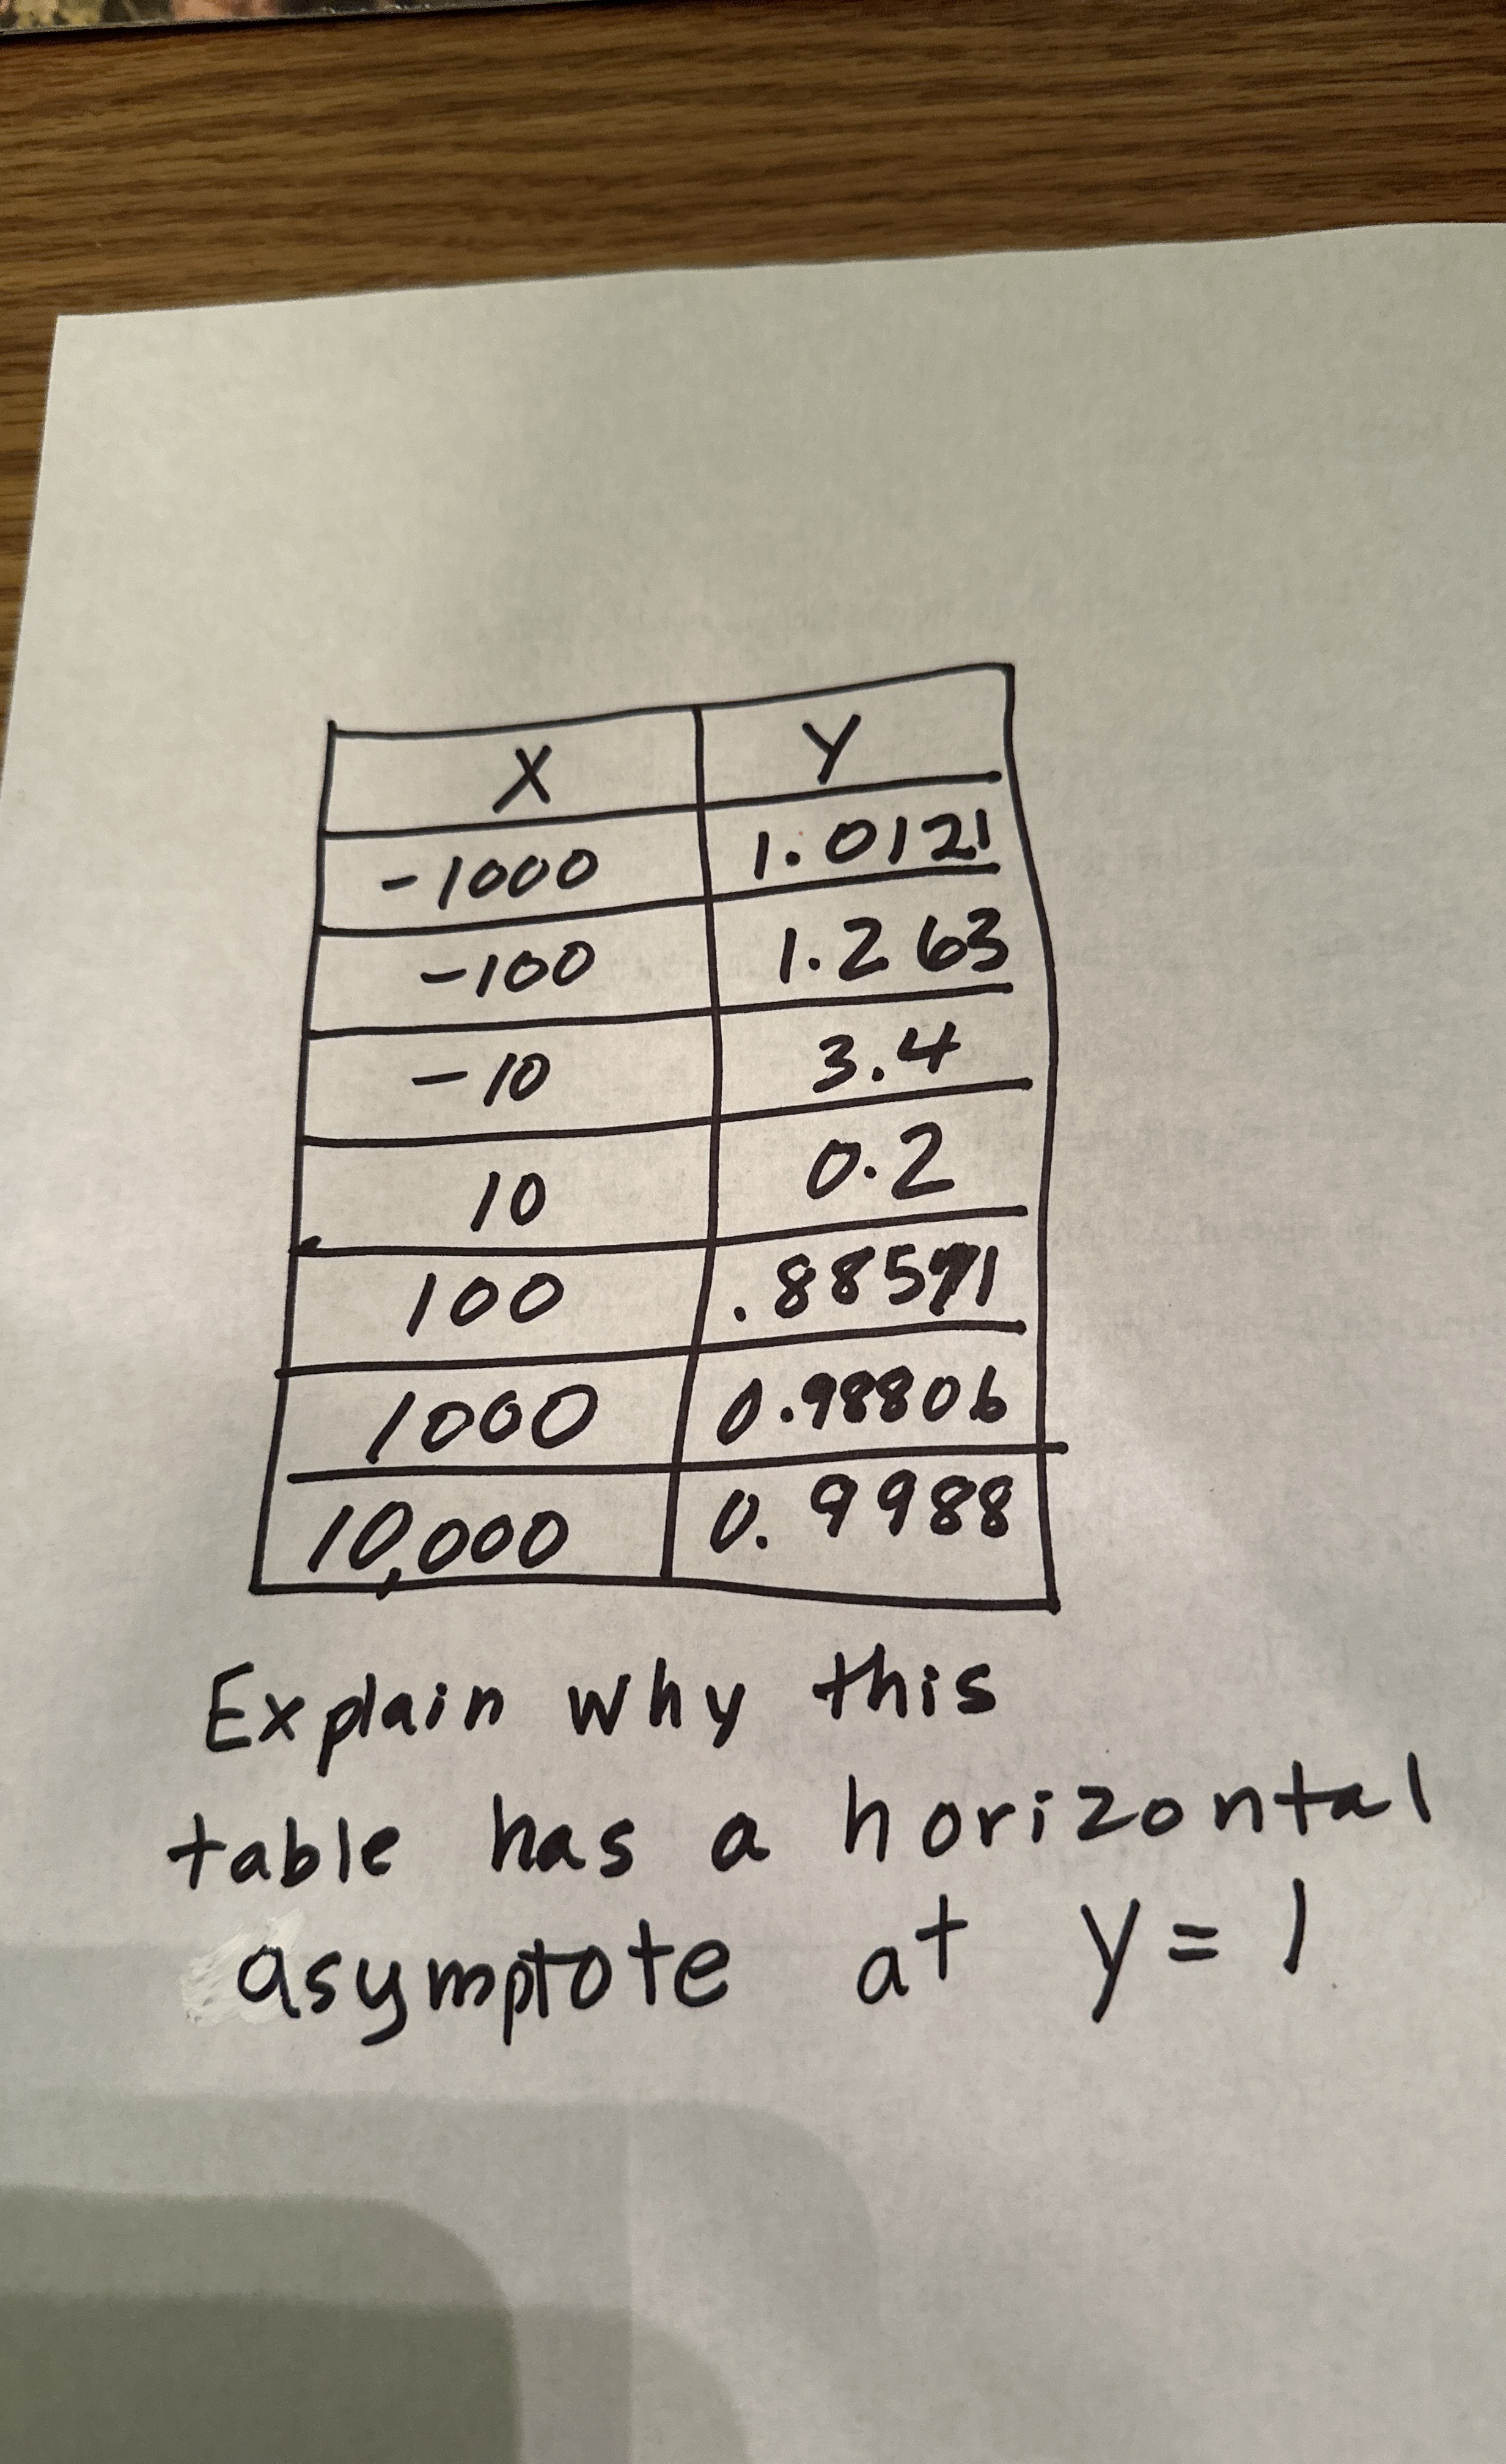 X Y
-1000 1.0121
-100 1.263
-10 3.4
10 0.2
100 .88571
1000 0.98806
10,000 0.9988
Explain why this
table has a horizontal
asymptote at y = 1